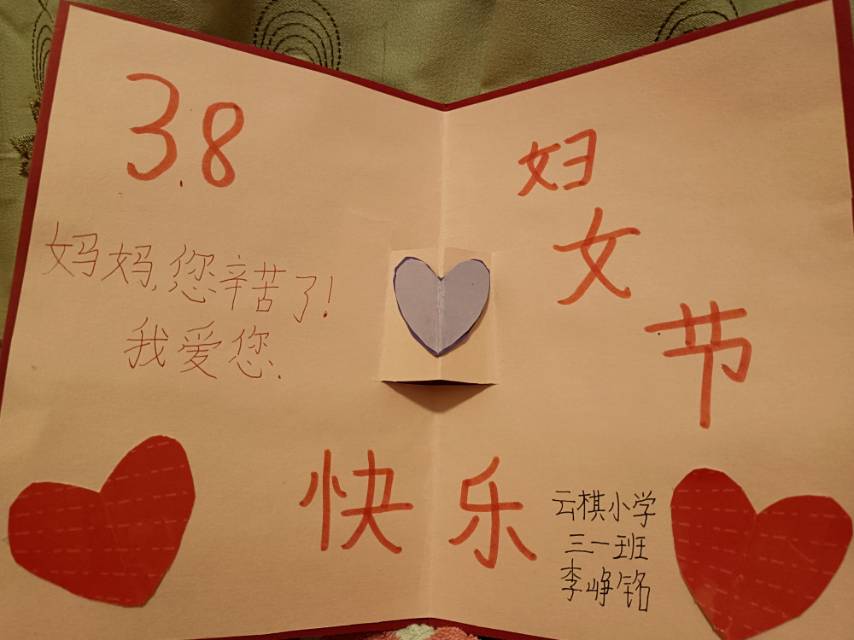 3.8
妇
女
节
妈妈,您辛苦了!
我爱您.
快乐
云棋小学
三一班
李峥铭